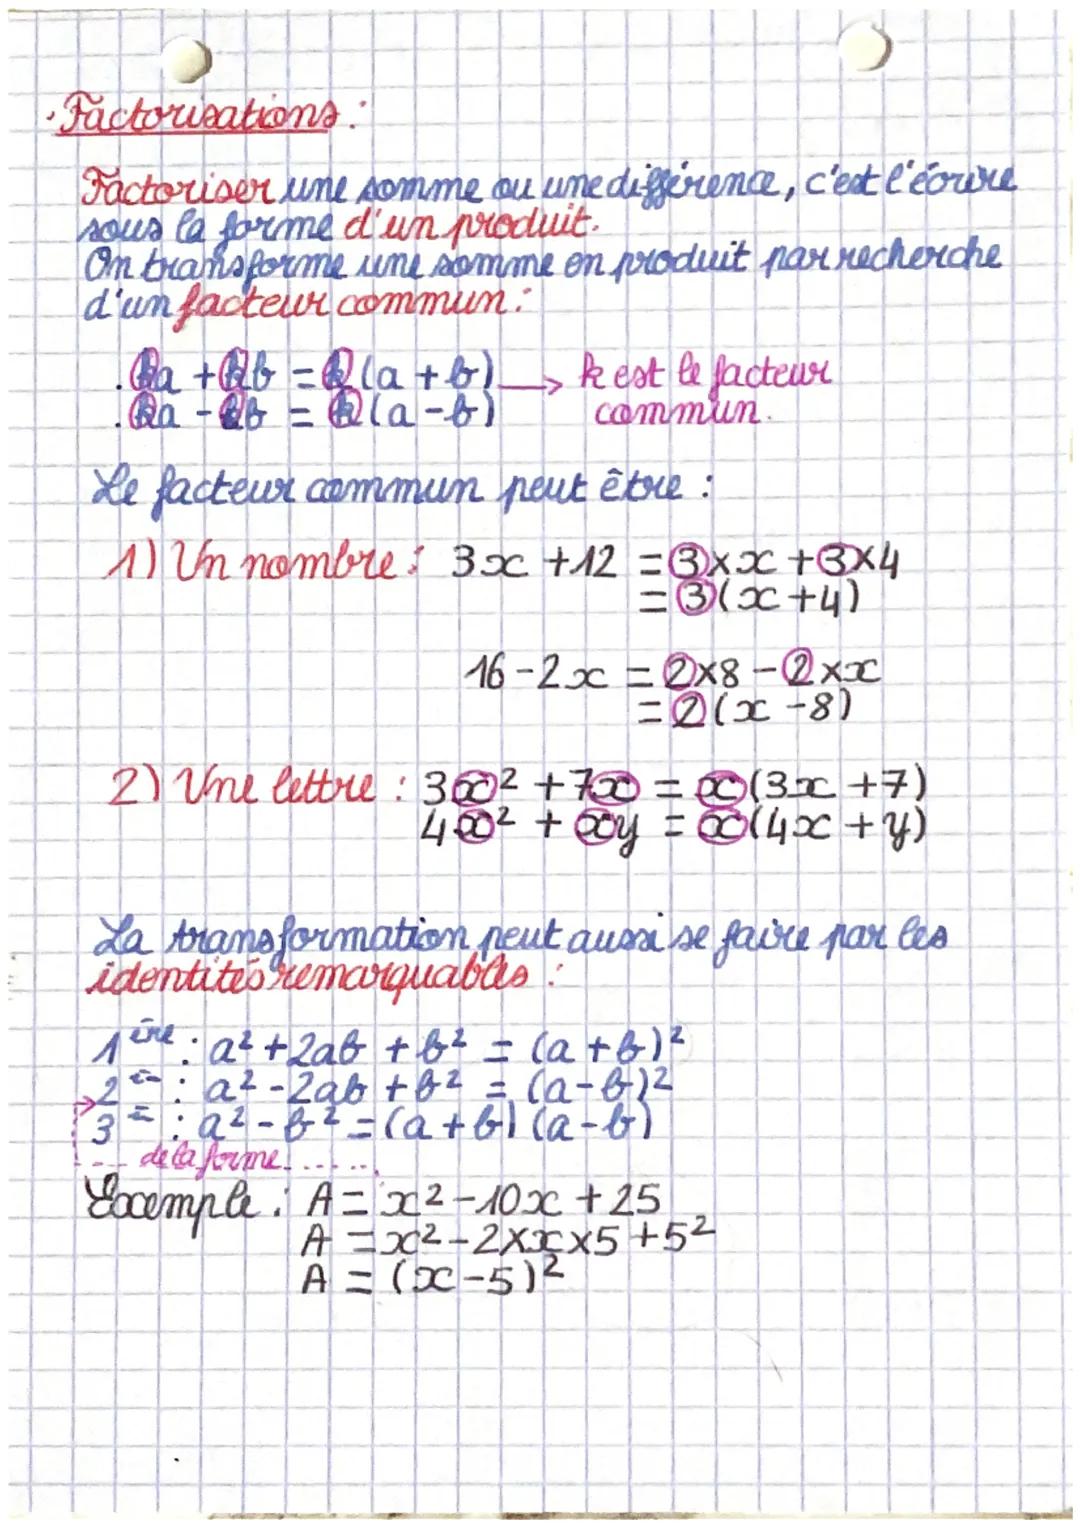 . Factorisations :
Factoriser une somme ou une différence, c'est l'écrire
sous la forme d'un produit.
On transforme une somme en produit par recherche
d'un facteur commun :
. ka + kb = k(a + b) → k est le facteur
. ka - kb = k(a - b) commun.
Le facteur commun peut être :
1) Un nombre : 3x + 12 = 3×x + 3×4
= 3(x + 4)
16 - 2x = 2×8 - 2×x
= 2(x - 8)
2) Une lettre : 3x² + 7x = x(3x + 7)
4x² + xy = x(4x + y)
La transformation peut aussi se faire par les
identités remarquables :
1ère : a² + 2ab + b² = (a + b)²
2 = : a² - 2ab + b² = (a - b)²
3 = : a² - b² = (a + b) (a - b)
de la forme
Exemple : A = x² - 10x + 25
A = x² - 2×x×5 + 5²
A = (x - 5)²